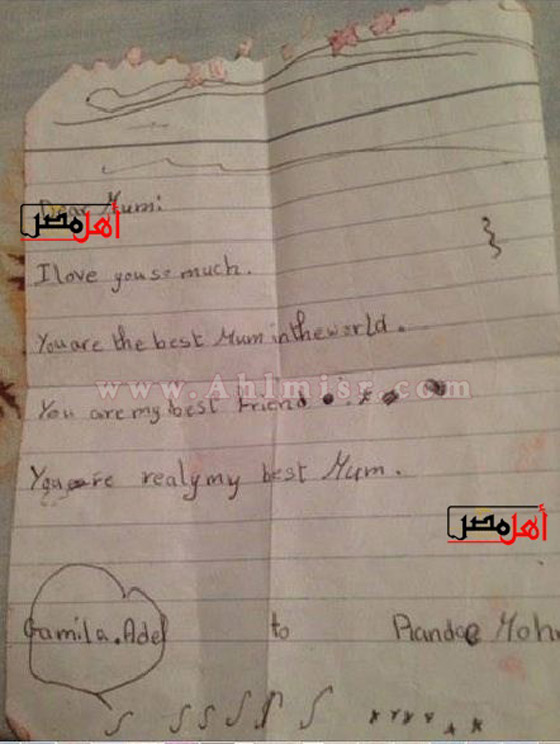 Dear Mumi
أهل مصر
I love you so much.
You are the best Mum in the world.
www.Ahlmisr.com
You are my best friend
You are realy my best Mum.
أهل مصر
Gamila.Adel to